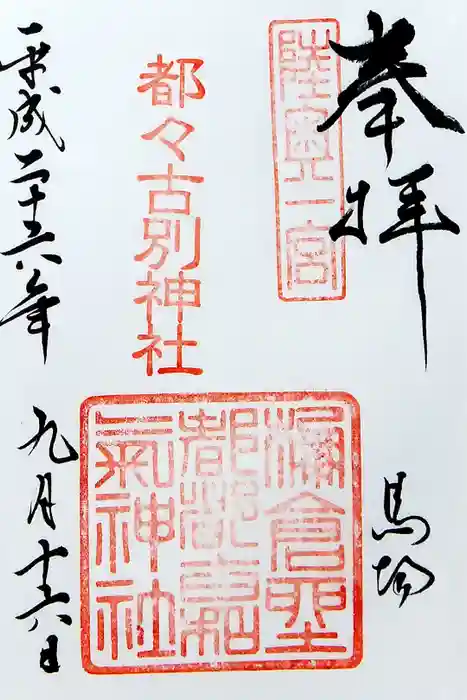 奉拝
陸奥一宮
馬場
都々古別神社
都都古和
氣神社
平成二十六年
九月十六日